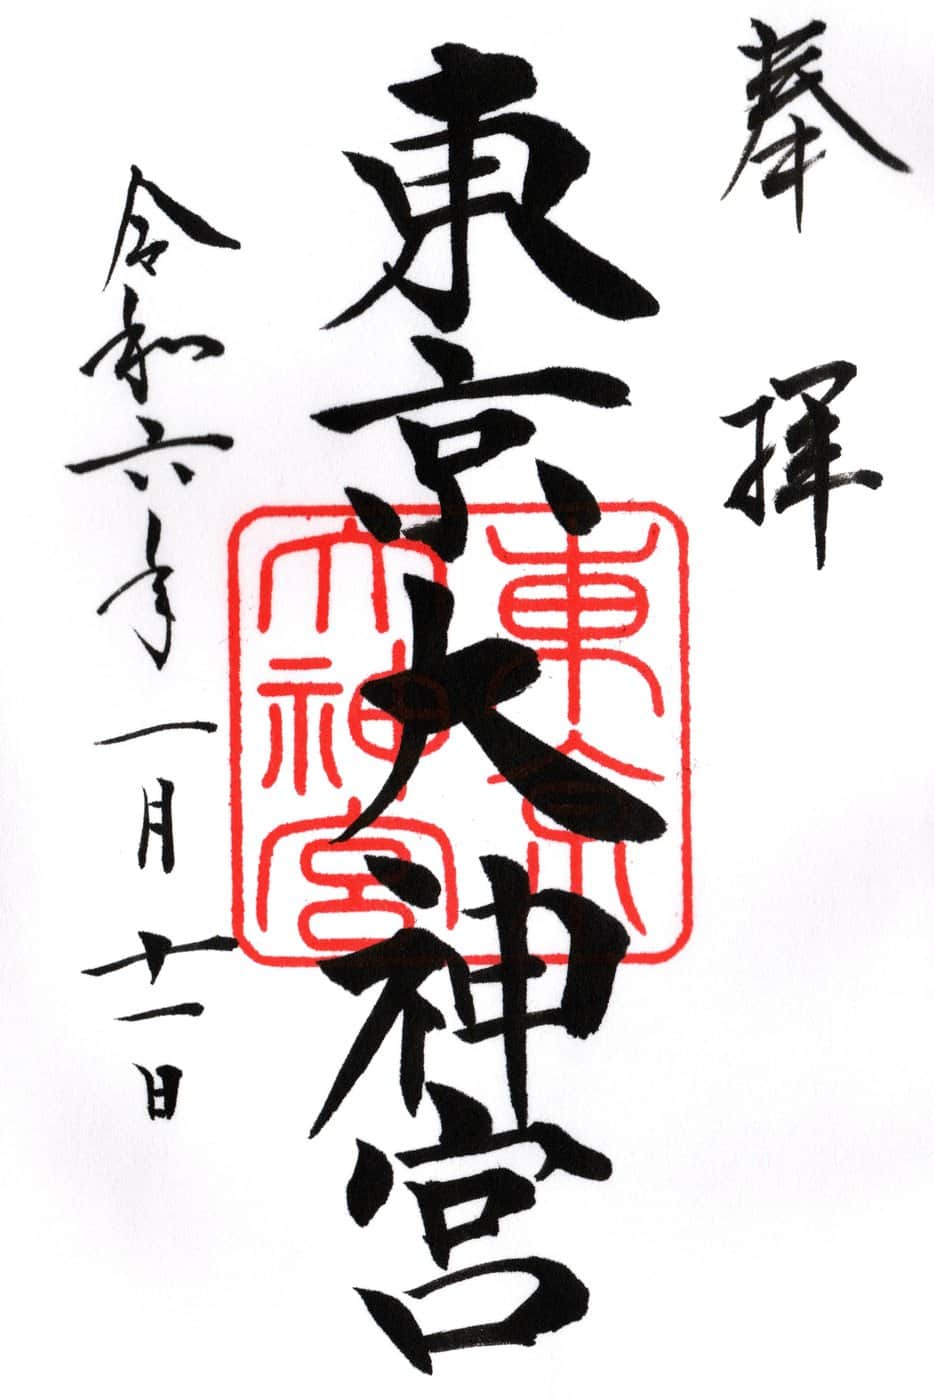 奉拝
東京大神宮
東京
大神宮
令和六年一月十一日